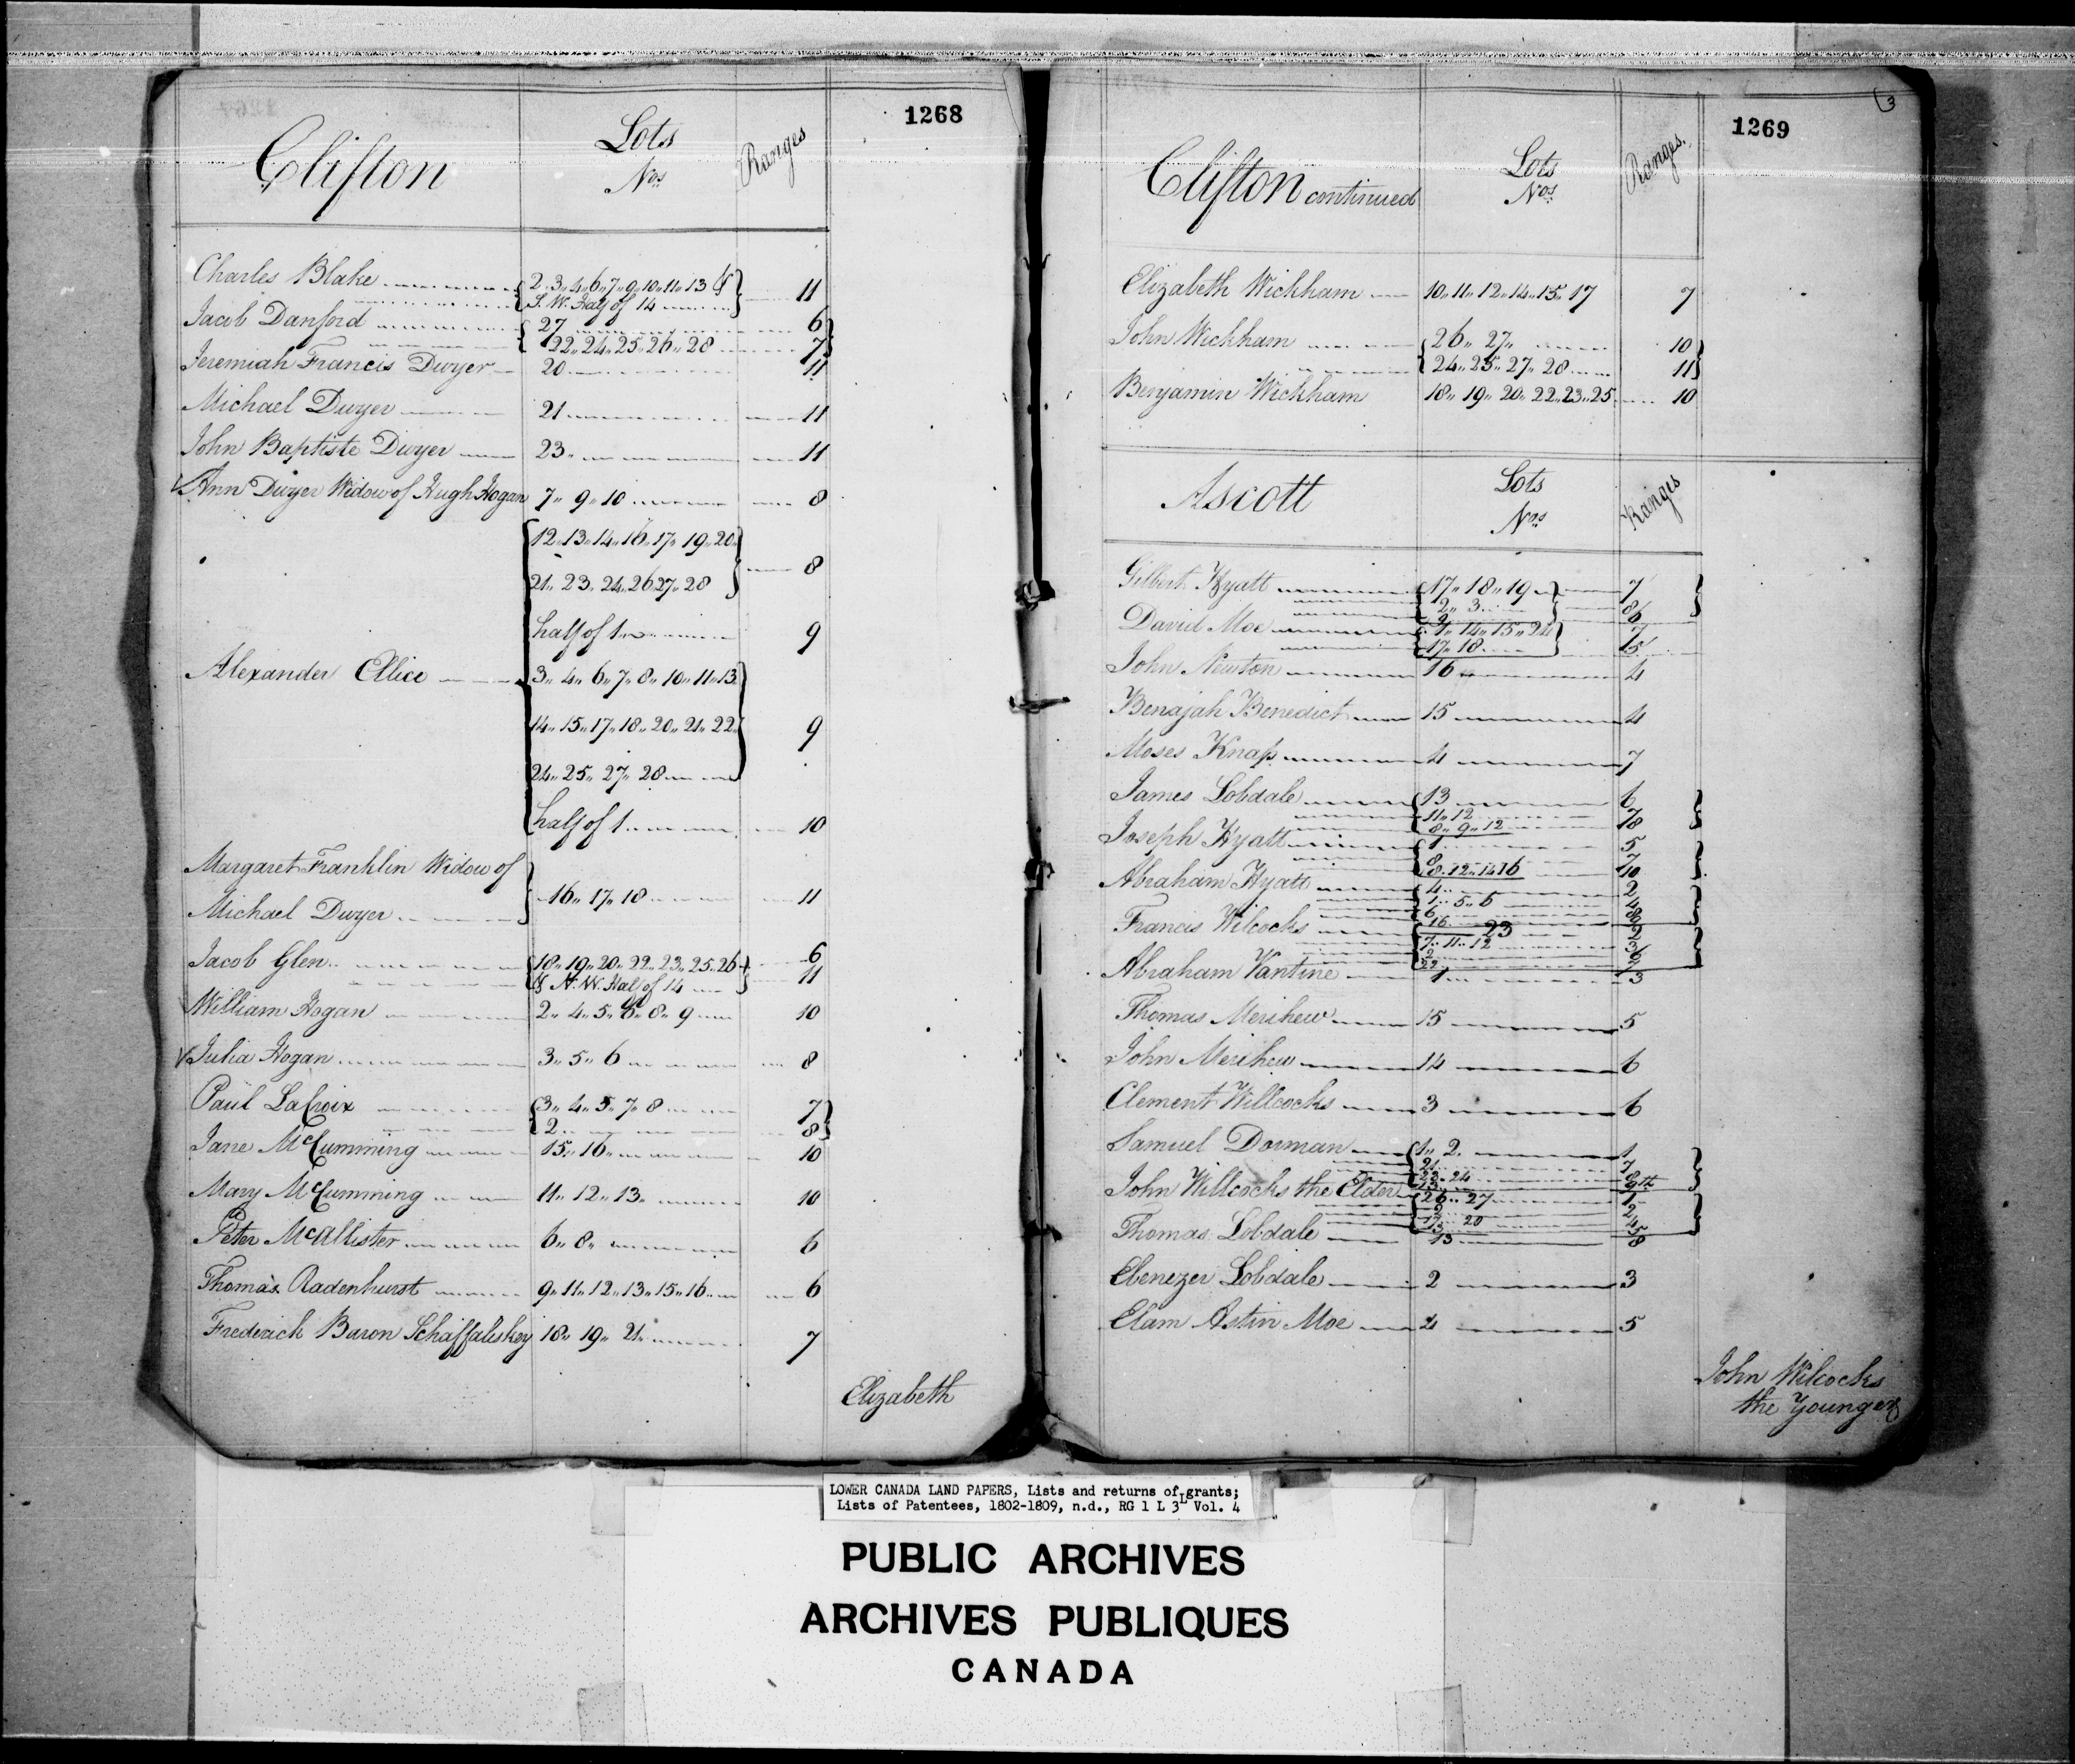 1268
Clifton Lots Nos Ranges
Charles Blake 2,, 3,, 4,, 6,, 7,, 9,, 10,, 11,, 13 &
S. W. Half of 14 11
Jacob Danford 27 6
22,, 24,, 25,, 26,, 28 7
Jeremiah Francis Dwyer 20 11
Michael Dwyer 21 11
John Baptiste Dwyer 23 11
Ann Dwyer Widow of Hugh Hogan 7,, 9,, 10 8
12,, 13,, 14,, 16,, 17,, 19,, 20
21,, 23,, 24,, 26,, 27,, 28 8
half of 1 9
Alexander Ellice 3,, 4,, 6,, 7,, 8,, 10,, 11,, 13
14,, 15,, 17,, 18,, 20,, 21,, 22 9
24,, 25,, 27,, 28
half of 1 10
Margaret Franklin Widow of
Michael Dwyer 16,, 17,, 18 11
Jacob Glen 18,, 19,, 20,, 22,, 23,, 25,, 26 6
& N. W. Half of 14 11
William Hogan 2,, 4,, 5,, 6,, 8,, 9 10
Julia Hogan 3,, 5,, 6 8
Paul LaCroix 3,, 4,, 5,, 7,, 8 7
2 8
Jane McCumming 15,, 16 10
Mary McCumming 11,, 12,, 13 10
Peter McAllister 6,, 8,, 6
Thomas Radenhurst 9,, 11,, 12,, 13,, 15,, 16 6
Frederick Baron Schaffaliskey 18,, 19,, 21 7
Elizabeth
3
1269
Clifton continued Lots Nos Ranges.
Elizabeth Wickham 10,, 11,, 12,, 14,, 15,, 17 7
John Wickham 26,, 27,, 10
24,, 25,, 27,, 28 11
Benjamin Wickham 18,, 19,, 20,, 22,, 23,, 25 10
Ascott Lots Nos Ranges
Gilbert Hyatt 17,, 18,, 19 7
2,, 3 8
David Moe 1,, 14,, 15,, 24 7
17,, 18
John Newton 16 4
Benajah Benedict 15 4
Moses Knap 4 7
James Lobdale 13 6
11,, 12 7
8,, 9,, 12 8
Joseph Hyatt 1 5
8 7
8,, 12,, 14 16 10
Abraham Hyatt 4 2
1,, 5,, 6 4
6 8
Francis Wilcocks 16 23 2
7,, 11,, 12 3
2 6
22 7
Abraham Vantine 1 3
Thomas Merihew 15 5
John Merihew 14 6
Clement Willcocks 3 6
Samuel Dorman 1,, 2 1
21 7
23,, 24 8
13 9th
John Willcocks the Elder 26,, 27 1
2 2
17,, 20 4
5
Thomas Lobdale 13 8
Ebenezer Lobdale 2 3
Elam Astin Moe 4 5
John Wilcocks
the Younger
LOWER CANADA LAND PAPERS, Lists and returns of grants;
Lists of Patentees, 1802-1809, n.d., RG 1 L 3L Vol. 4
PUBLIC ARCHIVES
ARCHIVES PUBLIQUES
CANADA